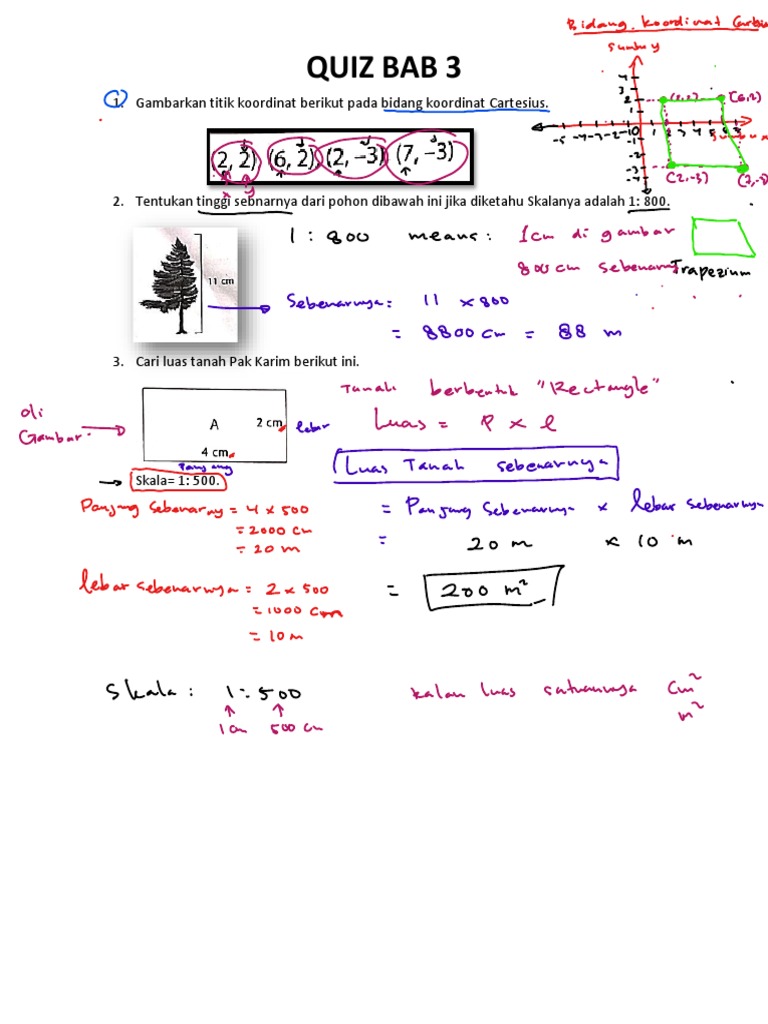 Bidang koordinat
sumbu y
QUIZ BAB 3
1. Gambarkan titik koordinat berikut pada bidang koordinat Cartesius.
(2, 2) (6, 2) (2, −3) (7, −3)
x y
4
3
2
1
-5 -4 -3 -2 -1 0 1 2 3 4 5 6
-1
-2
-3
-4
(2,2)
(6,2)
(2,-3)
2. Tentukan tinggi sebnarnya dari pohon dibawah ini jika diketahu Skalanya adalah 1: 800.
1 : 800 means: 1cm di gambar
800 cm sebenarny
Trapezium
11 cm
Sebenarnya: 11 x 800
= 8800 cm = 88 m
3. Cari luas tanah Pak Karim berikut ini.
Tanah berbentuk "Rectangle"
di
Gambar
A
2 cm
lebar
4 cm
Panjang
Luas = P x l
Skala= 1: 500.
Luas Tanah sebenarnya
Panjang Sebenarny = 4 x 500
= 2000 cm
= 20 m
= Panjang Sebenarnya x lebar sebenarnya
= 20 m x 10 m
lebar sebenarnya = 2 x 500
= 1000 cm
= 10 m
= 200 m²
Skala : 1 : 500
1 cm 500 cm
kalau luas satuannya cm²
m²